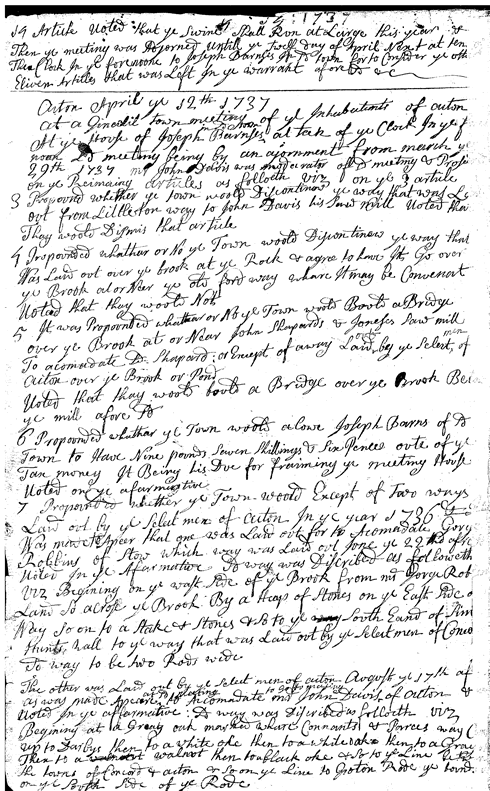 14 Article Voted that ye Swine Shall Run at Large this year &
Then ye meeting was Adjorned Untill ye Twelf day of April Next at ten
The Clock In ye forenoone to Joseph Barnses In sd town for to Consider ye oth
Eleven Articles that was Left In ye warrant afore sd &c
Acton April ye 12th 1737
At a Generill Town meeting of ye Inhabetints of acton
At ye House of Joseph Barnses at tak of ye Clock In ye f
noon sd meeting being by an ajornment from march ye
29th 1737 mr John Davis was moderator of sd meeting &
on ye Remaining articles as folloeth viz on ye 3 article
3 Propound whether ye town woold Discontinew ye way that was La
out from Littleton way to John Davis his Saw mill Voted tha
Thay woold Dismis that article
4 Propounded whathar or No ye Town woold Discontinew ye way that
Was Laid out over ye brook at ye Rock & agree to have It Go over
ye Brook at or Near ye old ford way whare It may be Convenant
Voted that thay woold Not
5 It was Propounded whathar or No ye Town woold Boold a Bridge
over ye Brook at or Near John Shapards & Joneses Saw mill
To acomadate sd Shapard: or Except of a way Laid out by ye Select men of
Acton over ye Brook or Pond
Voted that thay woold boold a Bridge over ye Brook Be
ye mill afore sd
6 Propounded whathar ye Town woold alowe Joseph Barns of sd
Town to Have Nine pounds Seven Shillings & Six Pence oute of ye
Tax money It Being his Due for fraiming ye meeting House
Voted on ye afarmitive
7 Propounded whether ye Town woold Except of Two ways
Laid out by ye Select men of acton In ye year 1736
Was made appear that one was Laid out for to Acomadate Gorg
Robbins of Stow which way was Laid out June ye 22nd
Voted In ye Afarmative sd way was Discribed as followeth
viz Begining on ye wast Side of ye Brook from mr Gorge Rob
Land So across ye Brook By a Heap of Stones on ye East Side o
Way So on to a Stake & Stones & So to ye South Eand of Sim
Hunts wall to ye way that was Laid out by ye Select men of Conco
sd way to be two Rods wide
The other was Laid out by ye Select men of acton Avgust ye 17th
as was made Appear to Acomadate mr John Davis of Acton &
Voted In ye affarmative: sd way was Discribed as folloeth viz
Begining at a Gray oak marked whare Connants & Parces way
up to Darbys then to a white oke then to a white oake then to a Gray
Then to a walnot then to black oke & So to ye Line
the towns of Concord & acton & So on ye Line to Groton Rode ye
on ye South Side of ye Rode